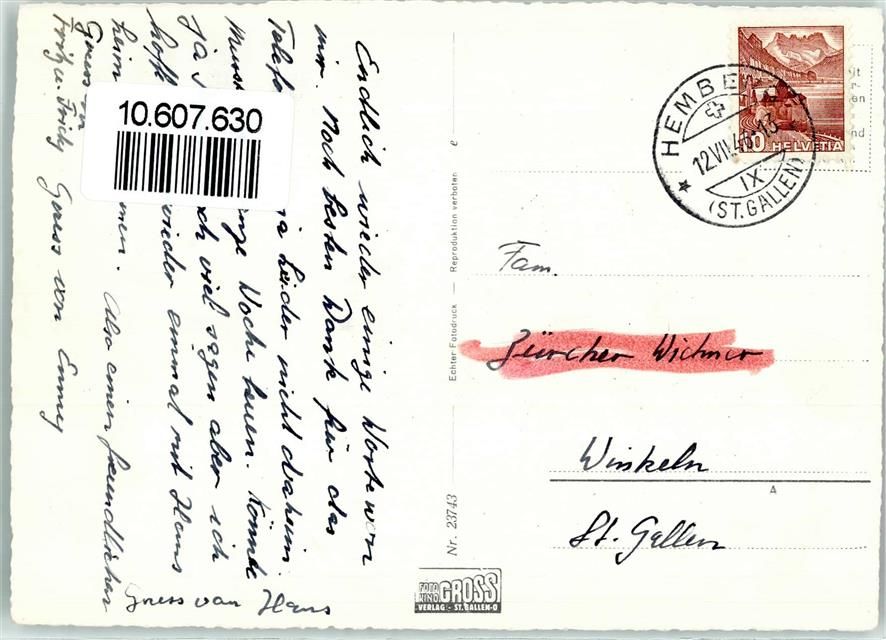 Endlich wieder einige Worte von
mir. Noch besten Dank für das
Telefon leider nicht daheim.
Musst Woche heuen. Könnte
ja s ch viel sagen aber ich
hoff wieder einmal mit Hans
heim men. Also einen freundlichen
Gruss
Fritz u. Fridy Gruss von Emmy
Gruss von Hans
10.607.630
HEMBE
12.VII.4 -13
IX
(ST. GALLEN)
HELVETIA
Fam.
Zürcher Widmer
Winkeln
A
St. Gallen
Echter Fotodruck — Reproduktion verboten
e
Nr. 23743
FOTO KINO GROSS
VERLAG · ST. GALLEN-O